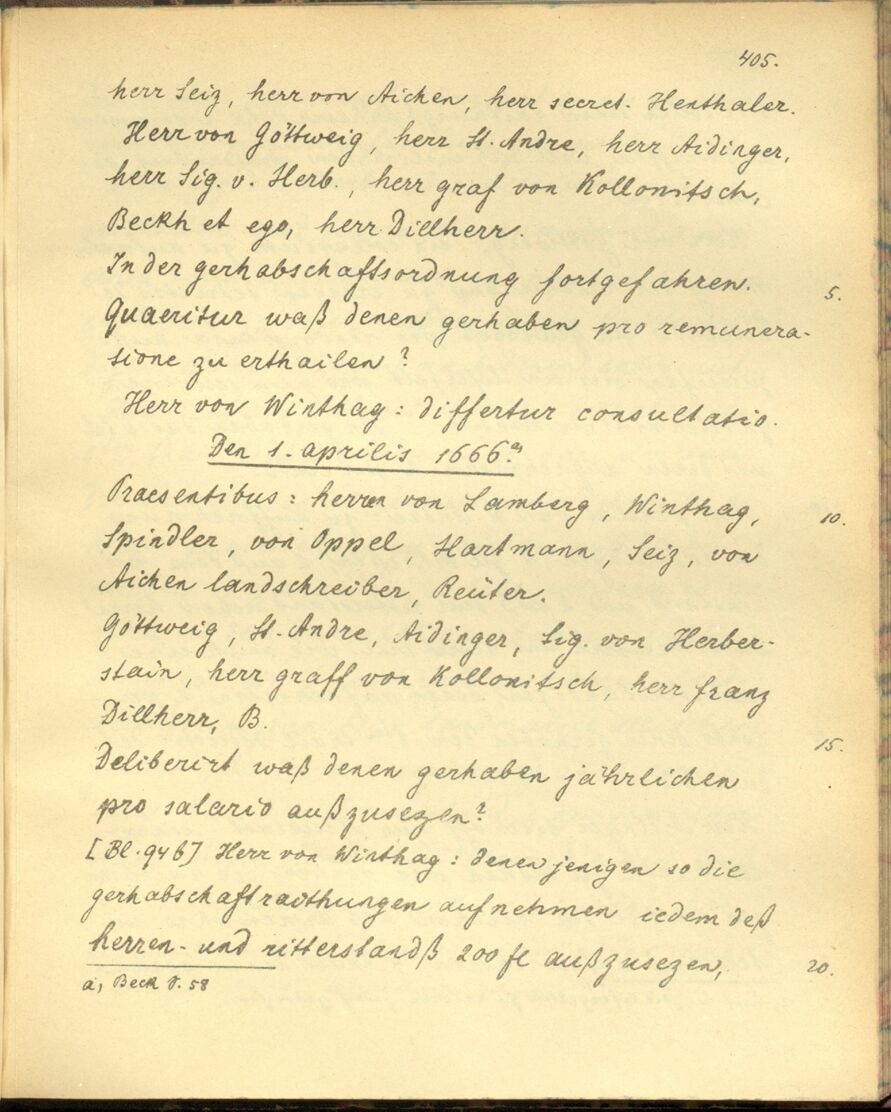 405.
herr Seiz, herr von Aichen, herr secret. Henthaler.
Herr von Göttweig, herr St. Andre, herr Aidinger,
herr Sig. v. Herb., herr graf von Kollonitsch,
Beckh et ego, herr Dillherr.
In der gerhabschaftsordnung fortgefahren.
5.
Quaeritur waß denen gerhaben pro remunera-
tione zu erthailen?
Herr von Winthag: differtur consultatio.
Den 1. aprilis 1666.a)
Praesentibus: herren von Lamberg, Winthag,
10.
Spindler, von Oppel, Hartmann, Seiz, von
Aichen landschreiber, Reüter.
Göttweig, St. Andre, Aidinger, Sig. von Herber-
stain, herr graff von Kollonitsch, herr franz
Dillherr, B.
15.
Deliberirt waß denen gerhaben jährlichen
pro salario außzusezen?
[Bl. 94b] Herr von Winthag: denen jenigen so die
gerhabschaftraithungen aufnehmen iedem deß
herren- und ritterstandß 200 fl außzusezen,
20.
a) Beck P. 58